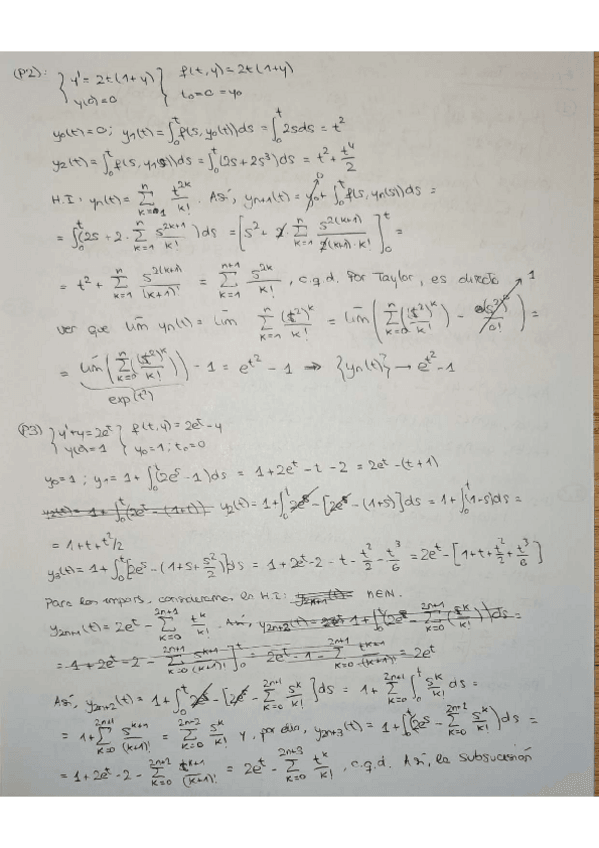 (P2): { y' = 2t(1+y) } f(t,y) = 2t(1+y)
y(0)=0 } t₀=0=y₀
y₀(t)=0; y₁(t)=∫₀ᵗ f(s,y₀(t))ds = ∫₀ᵗ 2sds = t²
y₂(t) = ∫₀ᵗ f(s,y₁(s))ds = ∫₀ᵗ (2s+2s³)ds = t² + t⁴/2
H.I: yₙ(t) = Σₖ₌₁ⁿ t²ᵏ/k!. Así, yₙ₊₁(t) = y₀ + ∫₀ᵗ f(s,yₙ(s))ds =
= ∫₀ᵗ (2s + 2·Σₖ₌₁ⁿ s²ᵏ⁺¹/k!)ds = [s² + 2·Σₖ₌₁ⁿ s²⁽ᵏ⁺¹⁾/2(k+1)·k!]₀ᵗ =
= t² + Σₖ₌₁ⁿ s²⁽ᵏ⁺¹⁾/(k+1)! = Σₖ₌₁ⁿ⁺¹ s²ᵏ/k!, c.q.d. Por Taylor, es directo
ver que lim yₙ(t) = lim Σₖ₌₁ⁿ (t²)ᵏ/k! = lim(Σₖ₌₀ⁿ (t²)ᵏ/k! - (t²)⁰/0!) = 1
= lim(Σₖ₌₀ⁿ (t²)ᵏ/k!) - 1 = e^t² - 1 ⇒ {yₙ(t)} → e^t² - 1
exp(t²)
(P3) { y'+y=2eᵗ } f(t,y) = 2eᵗ-y
y(0)=1 } y₀=1; t₀=0
y₀=1; y₁ = 1 + ∫₀ᵗ (2eˢ-1)ds = 1+2eᵗ-t-2 = 2eᵗ-(t+1)
y₂(t) = 1 + ∫₀ᵗ (2eᵗ-(1+t)) y₂(t) = 1 + ∫₀ᵗ 2eˢ - [2eˢ-(1+s)]ds = 1 + ∫₀ᵗ (1+s)ds =
= 1+t+t²/2
y₃(t) = 1 + ∫₀ᵗ [2eˢ-(1+s+s²/2)]ds = 1+2eᵗ-2-t-t²/2-t³/6 = 2eᵗ-[1+t+t²/2+t³/6]
Para los impars, consideramos la H.I: n∈ℕ.
y₂ₙ₊₁(t) = 2eᵗ - Σₖ₌₀²ⁿ⁺¹ tᵏ/k!. Así,
Así, y₂ₙ₊₂(t) = 1 + ∫₀ᵗ 2eˢ - [2eˢ - Σₖ₌₀²ⁿ⁺¹ sᵏ/k!]ds = 1 + Σₖ₌₀²ⁿ⁺¹ ∫₀ᵗ sᵏ/k! ds =
= 1 + Σₖ₌₀²ⁿ⁺¹ sᵏ⁺¹/(k+1)! = Σₖ₌₀²ⁿ⁺² sᵏ/k! Y, por ello, y₂ₙ₊₃(t) = 1 + ∫₀ᵗ (2eˢ - Σₖ₌₀²ⁿ⁺² sᵏ/k!)ds =
= 1+2eᵗ-2- Σₖ₌₀²ⁿ⁺² tᵏ⁺¹/(k+1)! = 2eᵗ - Σₖ₌₀²ⁿ⁺³ tᵏ/k!, c.q.d. Así, la subsucesión